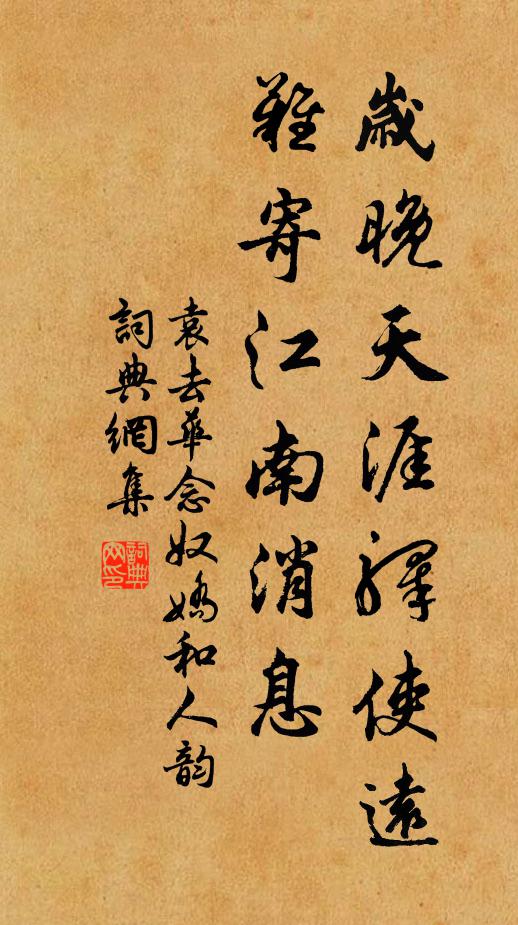 歲晚天涯驛使遠
難寄江南消息
袁去華念奴嬌和人韵
詞典網集
詞典
网印